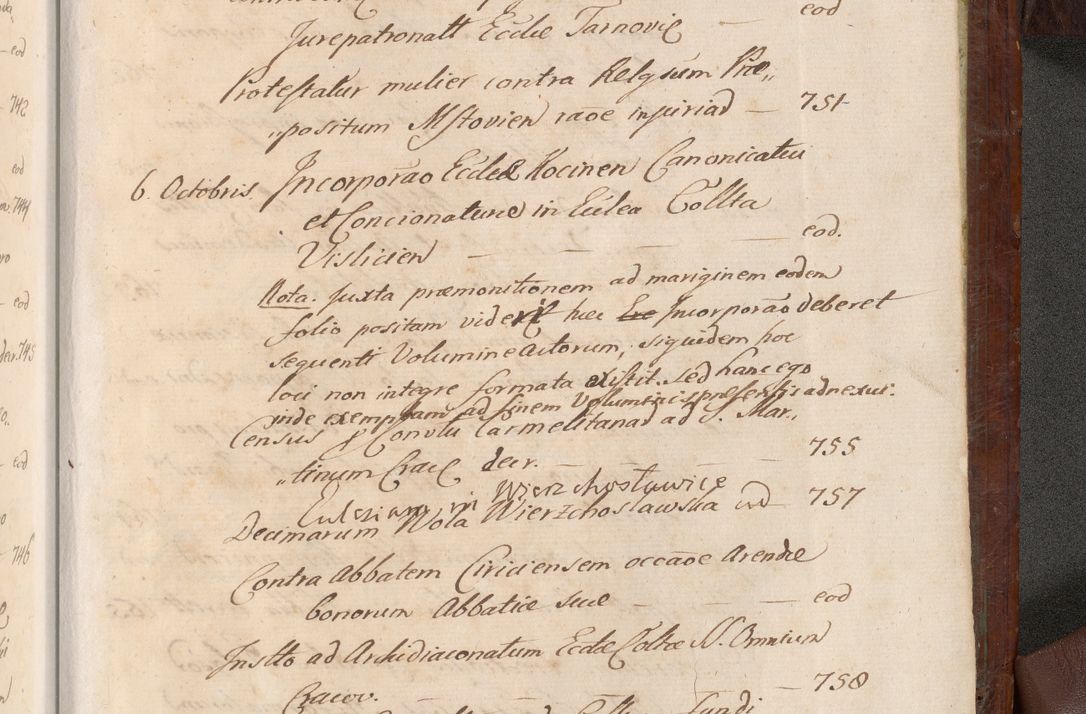 eod
Jurepatronatt Ecclæ Tarnovic
Protestatur mulier contra Relgium Præ„
„positum Mstovien raõe injuriad — 751
6. Octobris. Incorporão Ecclæ Kocinen Canonicatui
et Concionaturæ in Ecclea Collta
Vislicien — — — eod.
Nota. Juxta præmonitionem ad mariginem eodem
folio positam viderit hæc Incorporão deberet
sequenti Volumine Actorum, siquidem hoc
loci non integre formata existit. sed hanc ego
inde exemptam ad finem Voluminis præsentis adnexui.
Census p Conptu Carmelitanad ad S. Mar„
„tinum Crac decr. — — 755
Eulesiam in Wierzchosławice
Decimarum Wola Wierzchoslawska 757
Contra Abbatem Ciriciensem occaõe Arendæ
bonorum Abbatiæ suæ — — — eod
Instto ad Archidiaconatum Ecclæ Coltæ SS. Omnium
Cracov. — — — 758
Fundi
742
eod
744
eod
745
eod
746